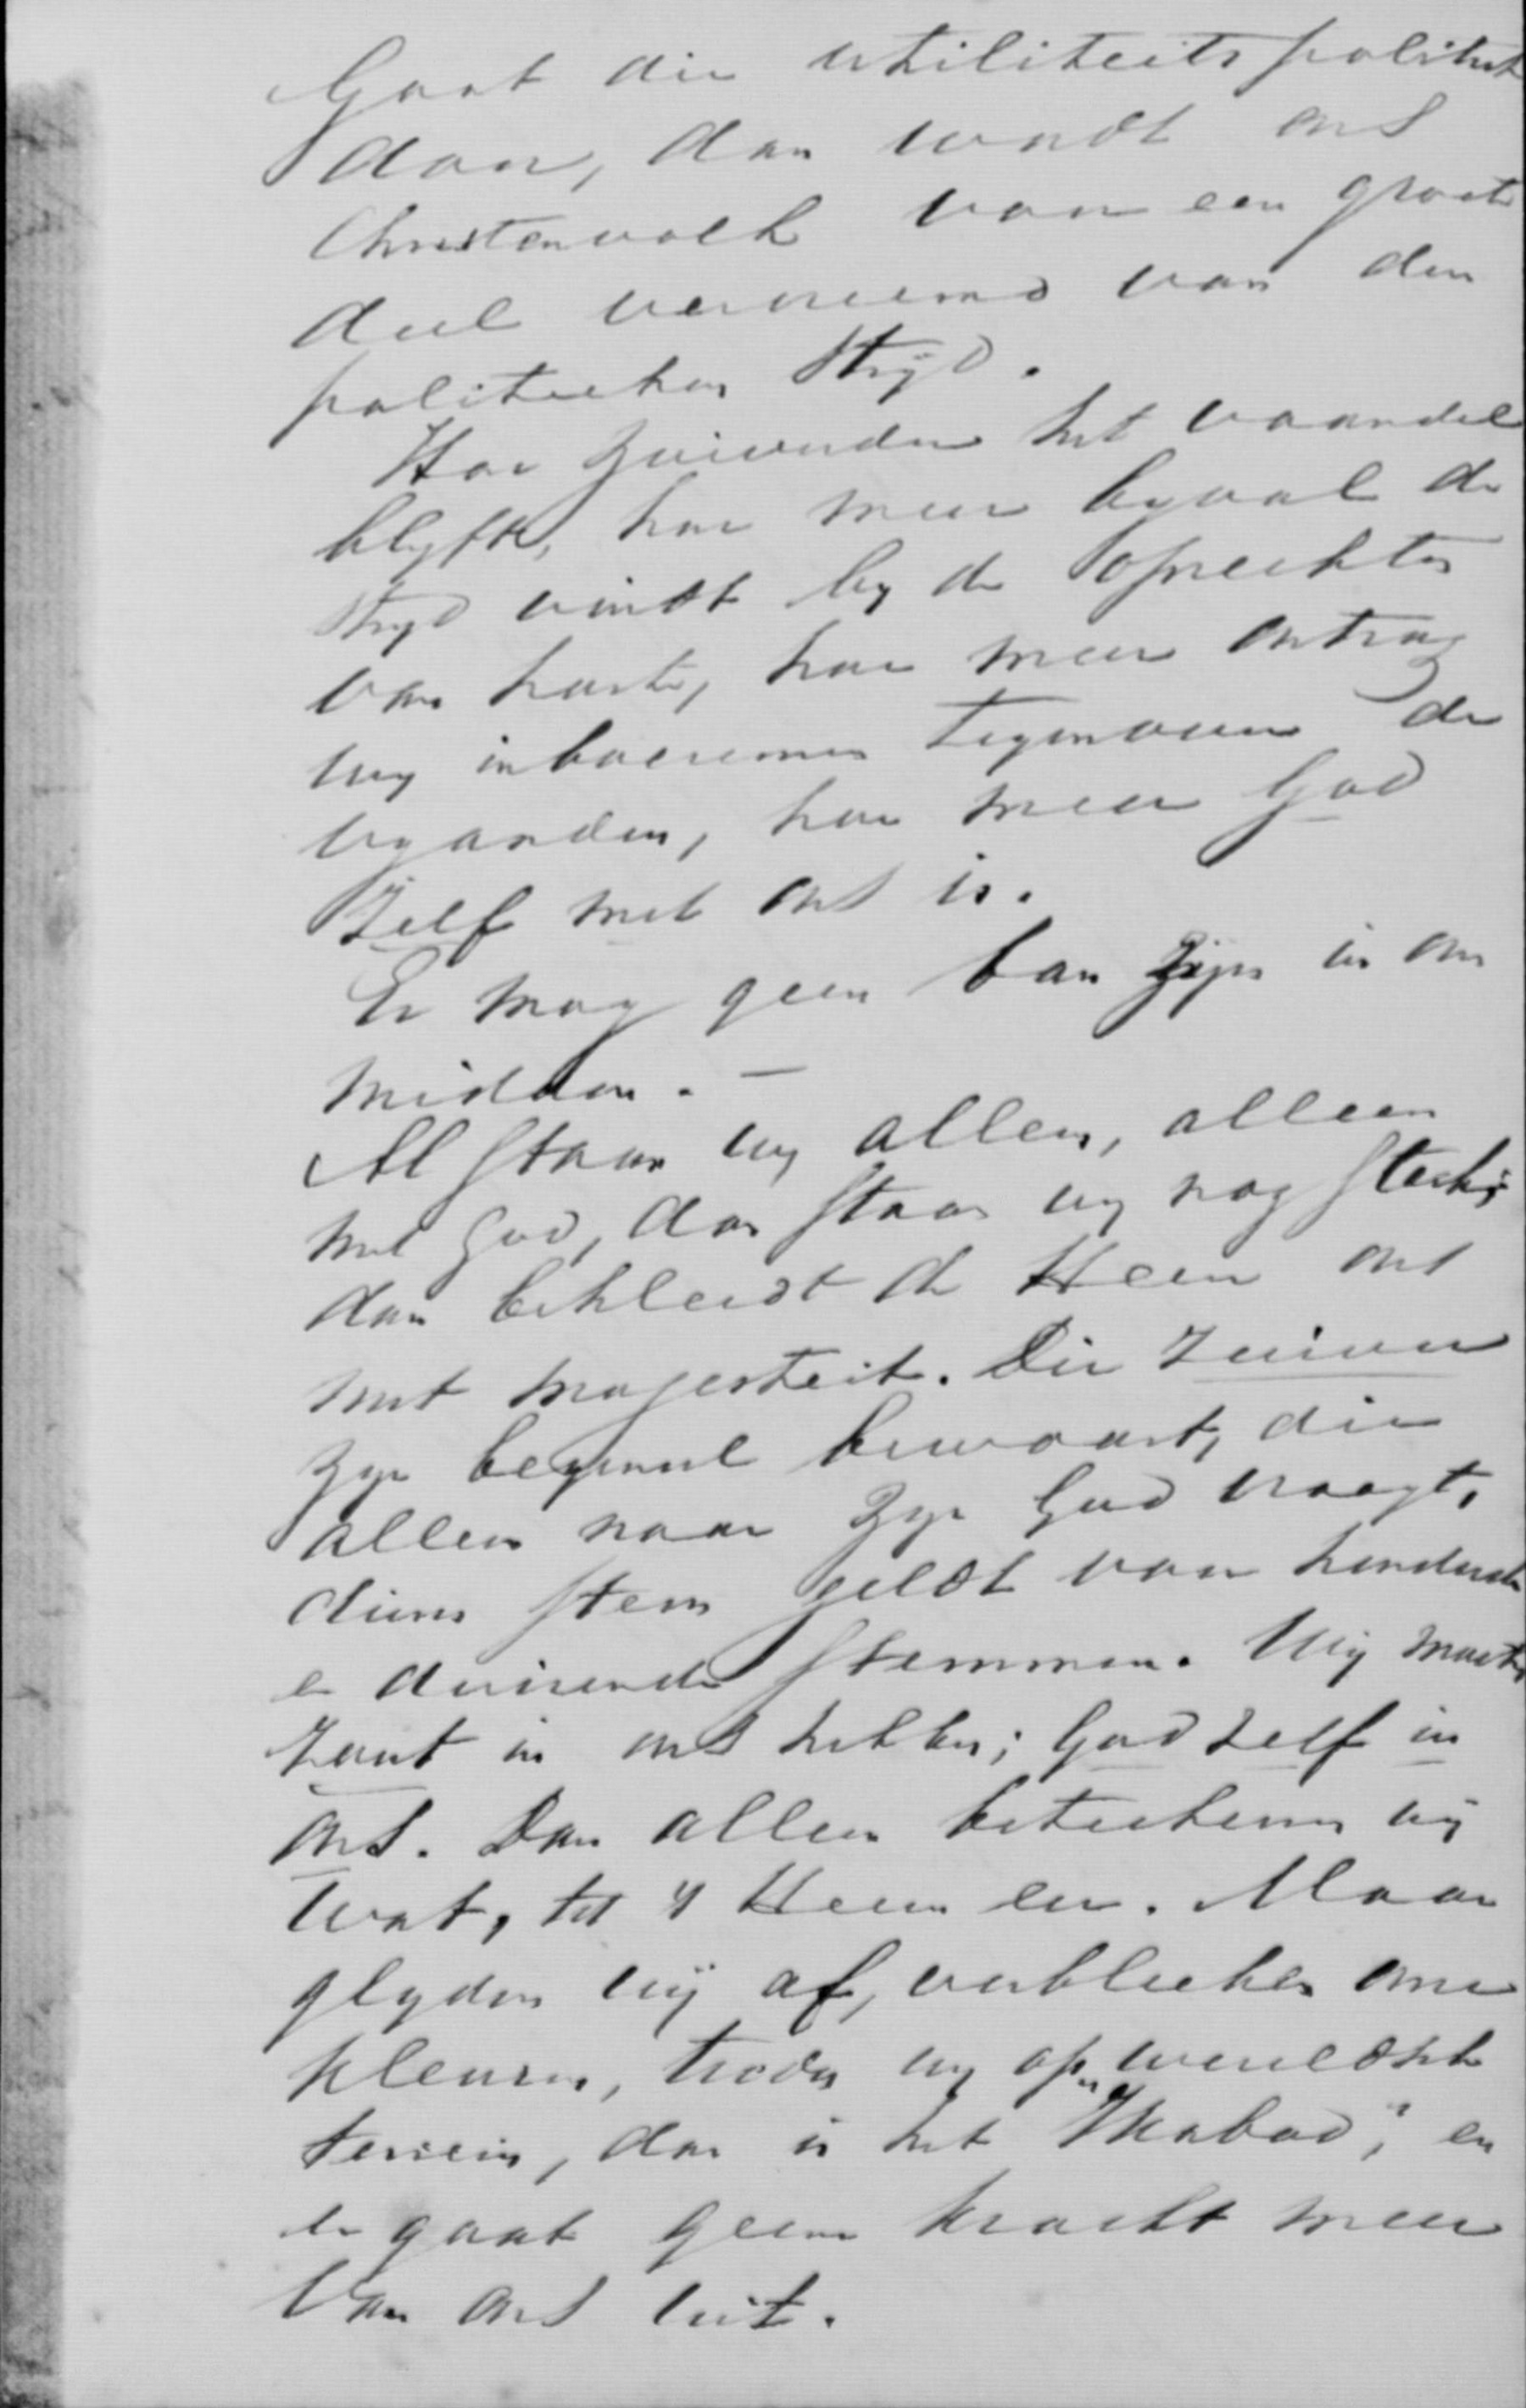 Gaat die utiliteits politiek
door, dan wordt ons
Christenvolk voor een groot
deel vervreemd van den
politieken strijd.
Hoe zuiverder het vaandel
blyft, hoe meer byval de
stryd vindt by de oprechten
van harte, hoe meer ontzag
wy inboezemen tegenover de
vyanden, hoe meer God
Zelf met ons is.
Er mag geen ban zijn in ons
midden. —
Al staan wy alleen, alleen
met God, dan staan wy nog sterk;
dan bekleedt de Heere ons
met majesteit. Die zuiver
zyn beginsel bewaart, die
alleen naar zyn God vraagt,
diens stem geldt voor honderde
en duizende stemmen. Wij moeten
zout in ons hebben; God zelf in
ons. Dan alleen beteekenen wij
wat, tot 's Heeren eer. Maar
glyden wij af, verbleeken onze
kleuren, treden wy op wereldsch
terrein, dan is het "Ikabod", en
er gaat geen kracht meer
van ons uit.